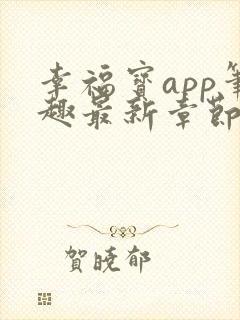 幸福宝app笔
趣最新章节
贺晓郁